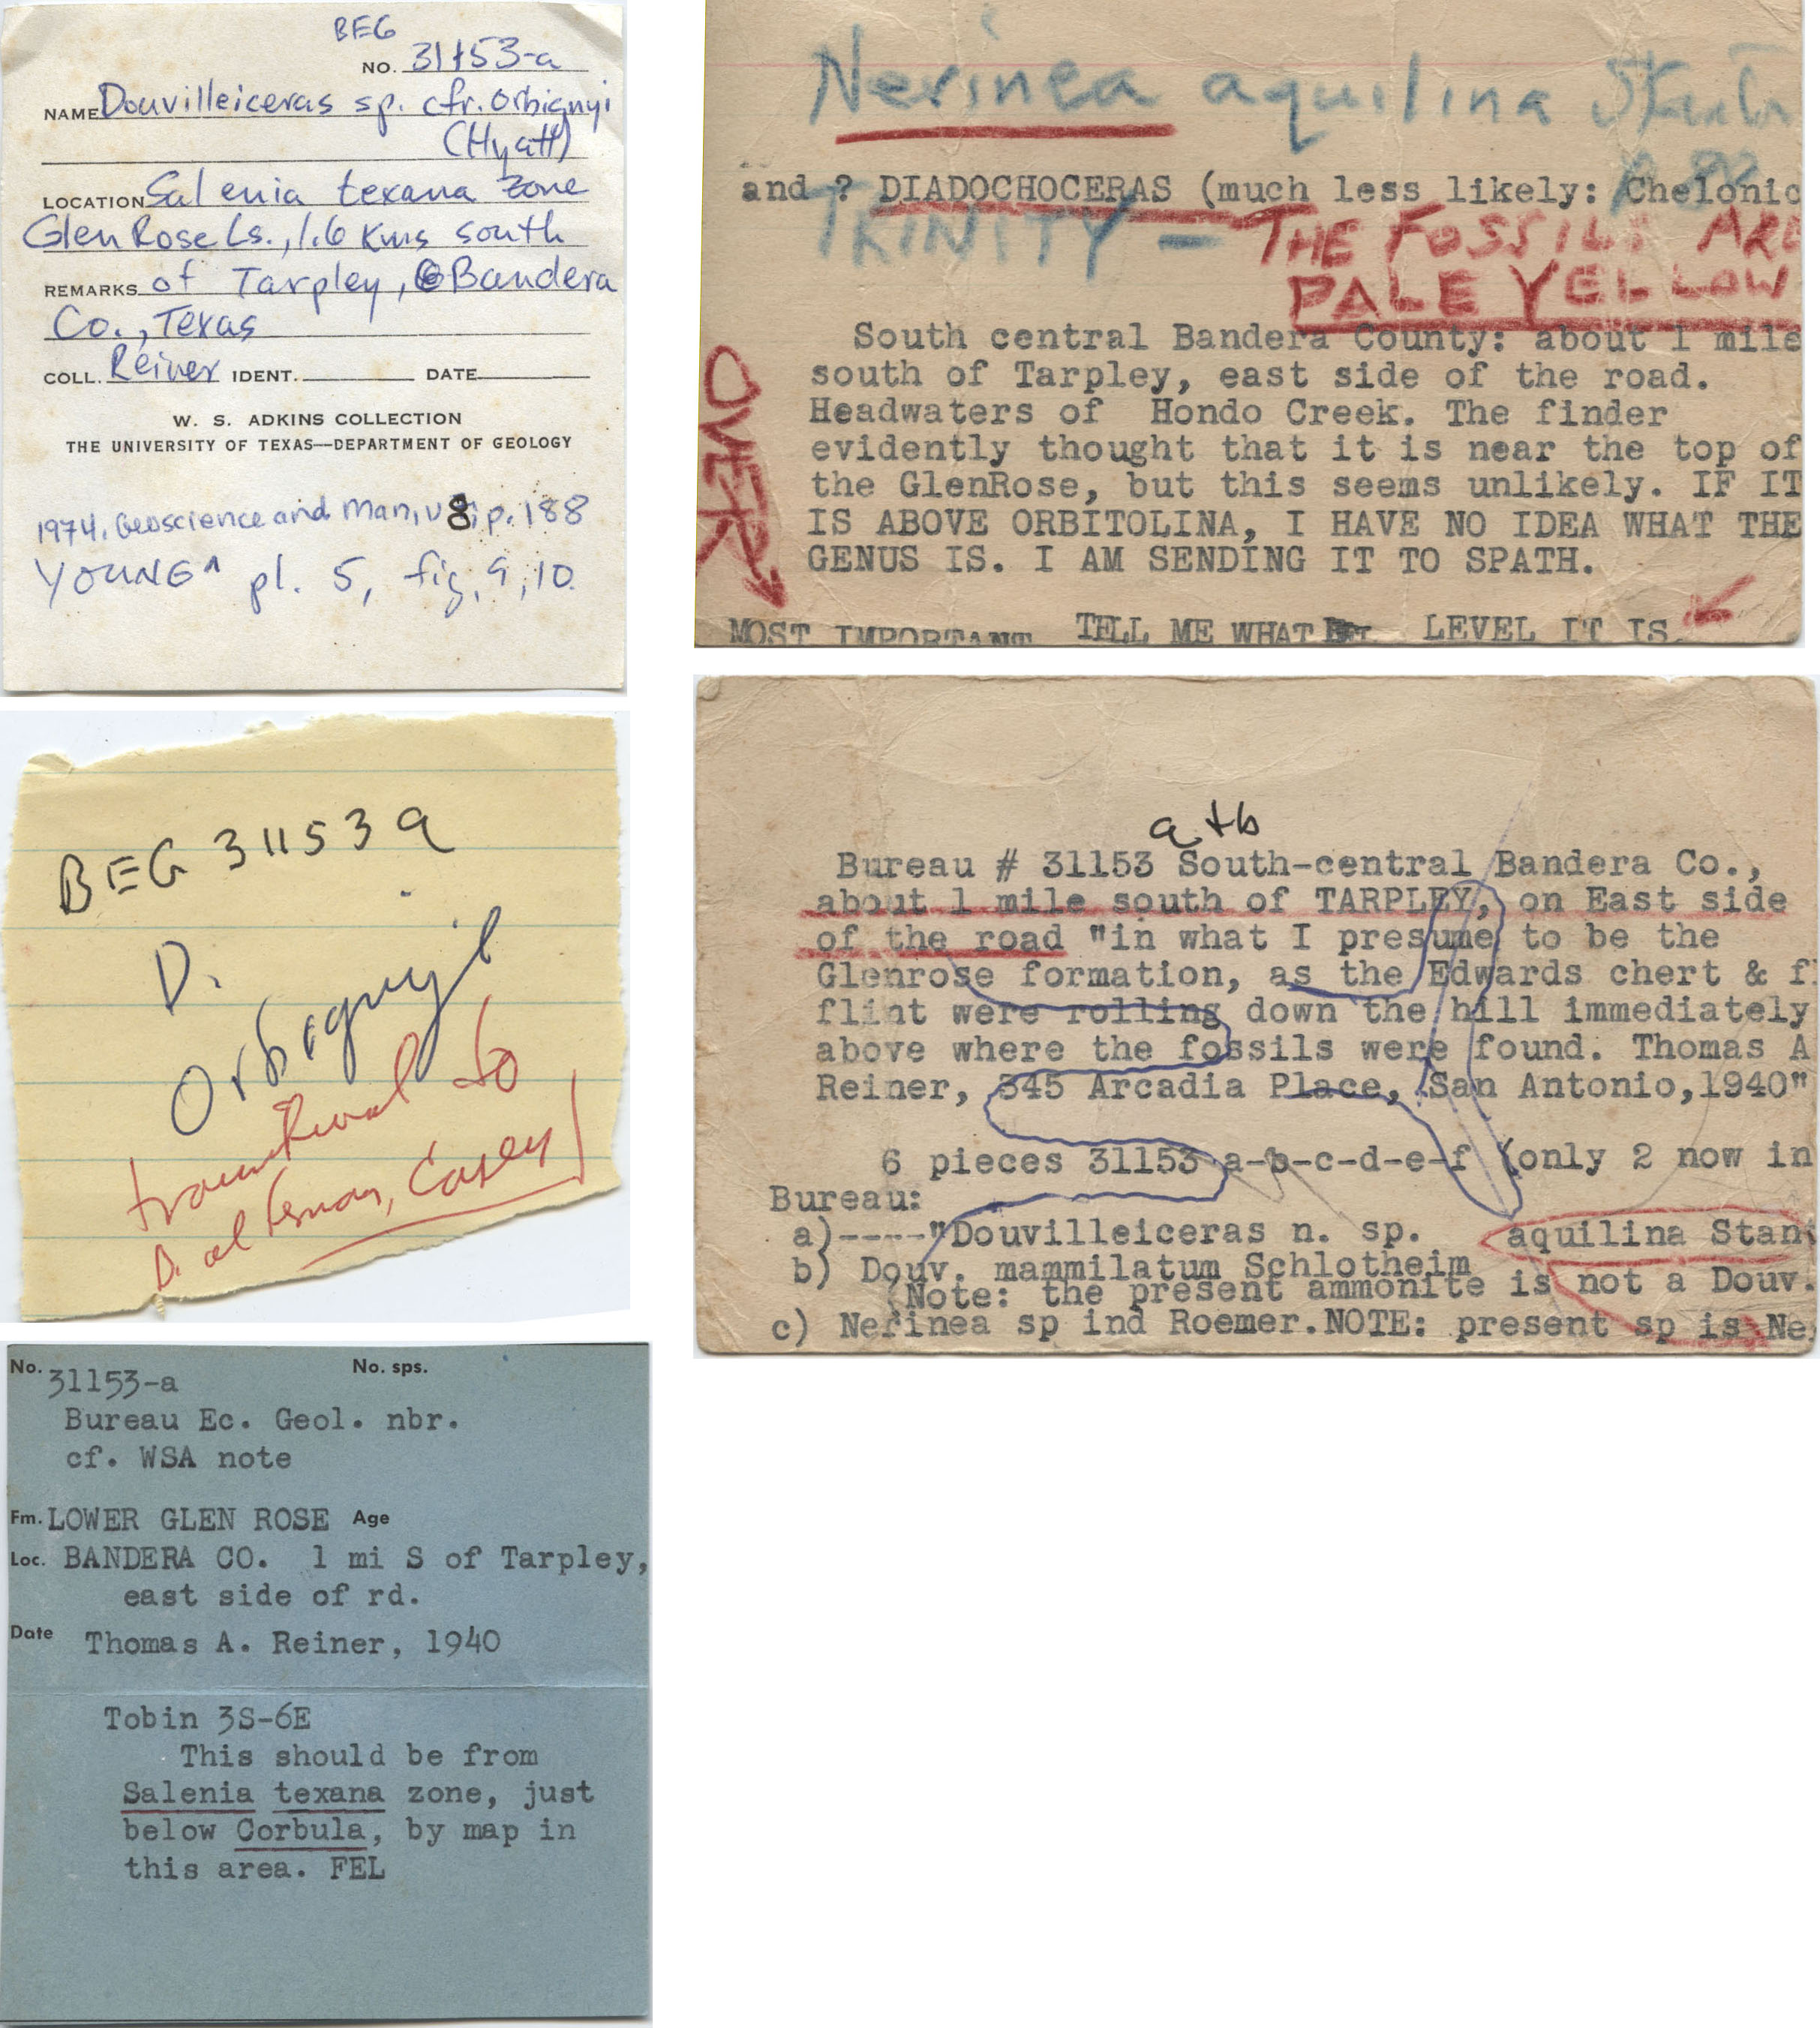 BEG
NO. 31153-a
NAME Douvilleiceras sp. cfr. Orbignyi
(Hyatt)
LOCATION Salenia texana zone
Glen Rose Ls., 1.6 Kms south
REMARKS of Tarpley, Bandera
Co., Texas
COLL. Reiner IDENT. DATE
W. S. ADKINS COLLECTION
THE UNIVERSITY OF TEXAS—DEPARTMENT OF GEOLOGY
1974, Geoscience and Man, v 8, p. 188
YOUNG ^ pl. 5, fig, 9, 10.
BEG 31153 a
D.
Orbignyi
to
D. Casey
No. 31153-a No. sps.
Bureau Ec. Geol. nbr.
cf. WSA note
Fm. LOWER GLEN ROSE Age
Loc. BANDERA CO. 1 mi S of Tarpley,
east side of rd.
Date Thomas A. Reiner, 1940
Tobin 3S-6E
This should be from
Salenia texana zone, just
below Corbula, by map in
this area. FEL
Nerinea aquilina Stanton
and ? DIADOCHOCERAS (much less likely: Chelonic
TRINITY — THE FOSSILS ARE
PALE YELLOW
South central Bandera County: about 1 mile
south of Tarpley, east side of the road.
Headwaters of Hondo Creek. The finder
evidently thought that it is near the top of
the GlenRose, but this seems unlikely. IF IT
IS ABOVE ORBITOLINA, I HAVE NO IDEA WHAT THE
GENUS IS. I AM SENDING IT TO SPATH.
OVER
MOST IMPORTANT TELL ME WHAT LEVEL IT IS
a + b
Bureau # 31153 South-central Bandera Co.,
about 1 mile south of TARPLEY, on East side
of the road "in what I presume to be the
Glenrose formation, as the Edwards chert & f
flint were rolling down the hill immediately
above where the fossils were found. Thomas A
Reiner, 545 Arcadia Place, San Antonio,1940"
6 pieces 31153 a-b-c-d-e-f (only 2 now in
Bureau:
a)----"Douvilleiceras n. sp. aquilina Stan
b) Douv. mammilatum Schlotheim
(Note: the present ammonite is not a Douv.
c) Nerinea sp ind Roemer.NOTE: present sp is Ne